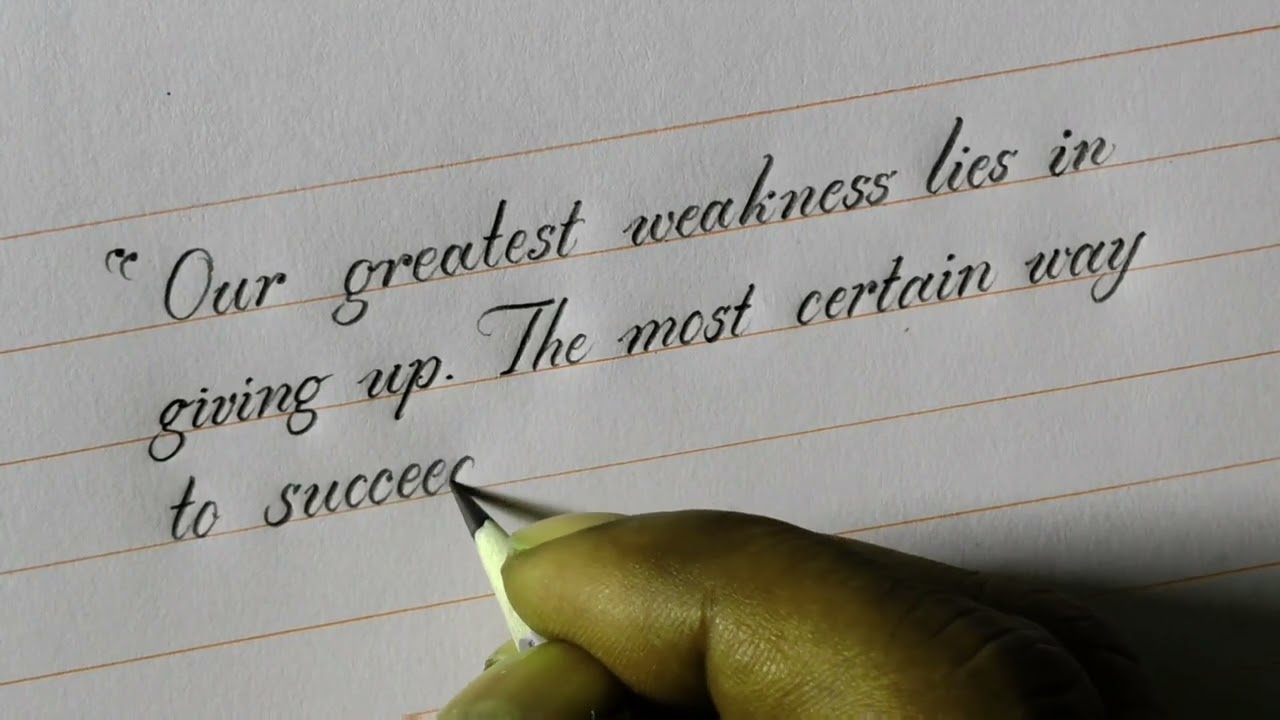 “Our greatest weakness lies in
giving up. The most certain way
to succee